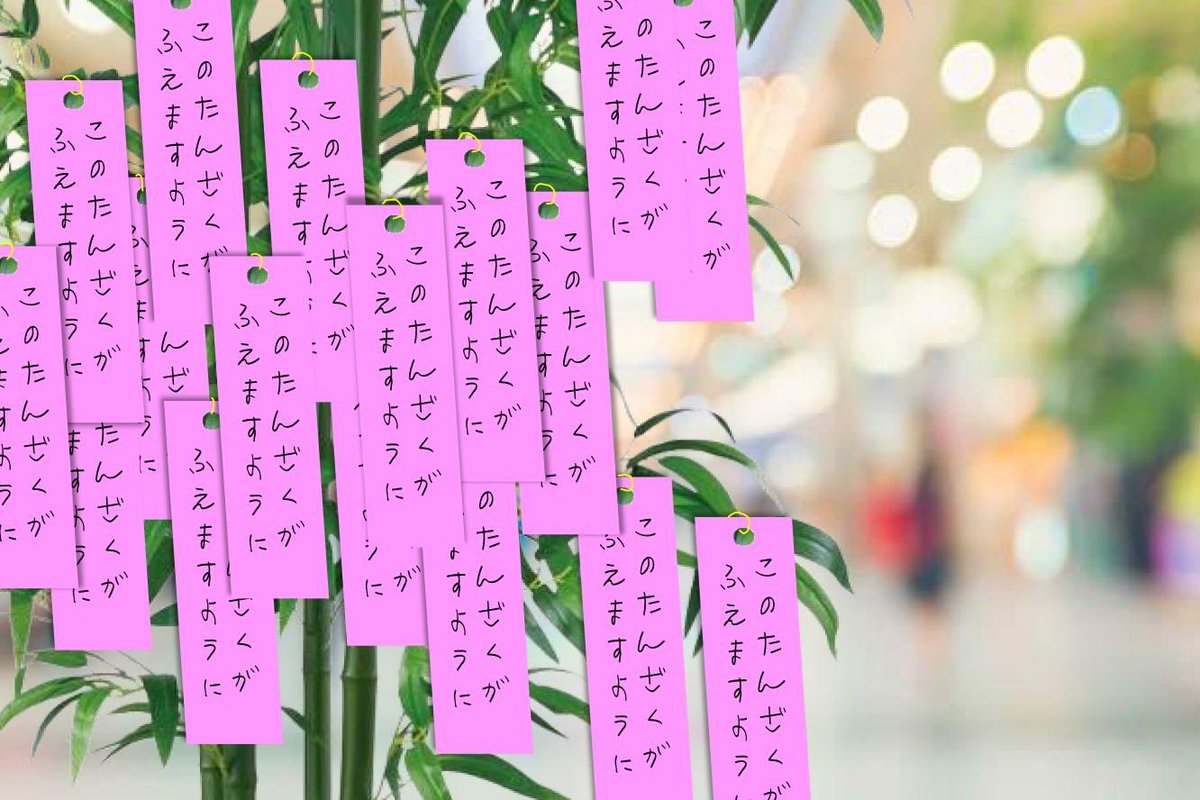 このたんざくが
ふえますように
このたんざくが
ふえますように
このたんざくが
ふえます
このたんざくが
ふえますように
このたんざくが
ふえますように
このたんざくが
ふえますように
このたんざくが
ふえますように
このたんざくが
このたんざくが
ふえますように
このたんざくが
このたんざくが
ふえますように
このたんざくが
ふえますよう
のたんざくが
ますように
たんざくが
ふえますように